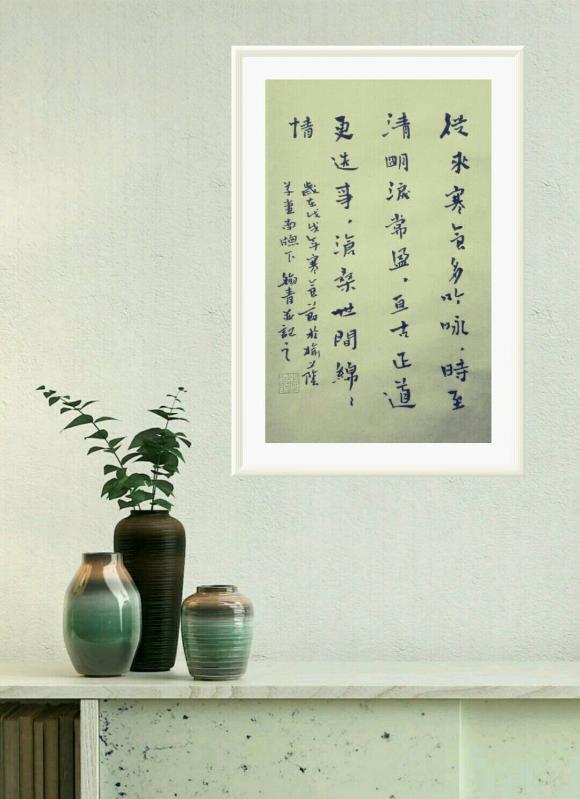 從來寒食多吟咏，時至
清明淚常盈，亘古正道
更迭事，滄桑世間綿々
情
歲在戊戌年寒食節於榆
南牕下 翰青並記之